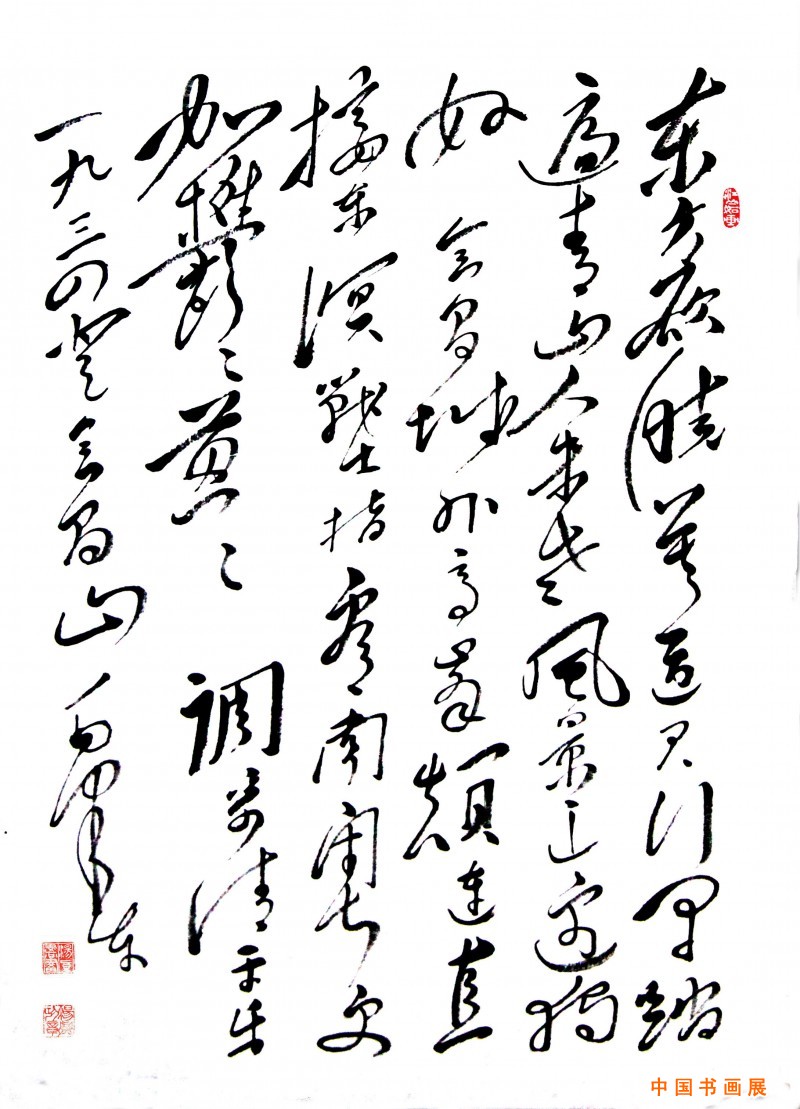 東方欲曉莫道君行早踏
遍青山人未老风景这边独
好 会昌城外高峯顛连直
接东溟戰士指看南粤更
加欝々葱々 調寄清平乐
一九三四登会昌山 毛泽东
中国书画展